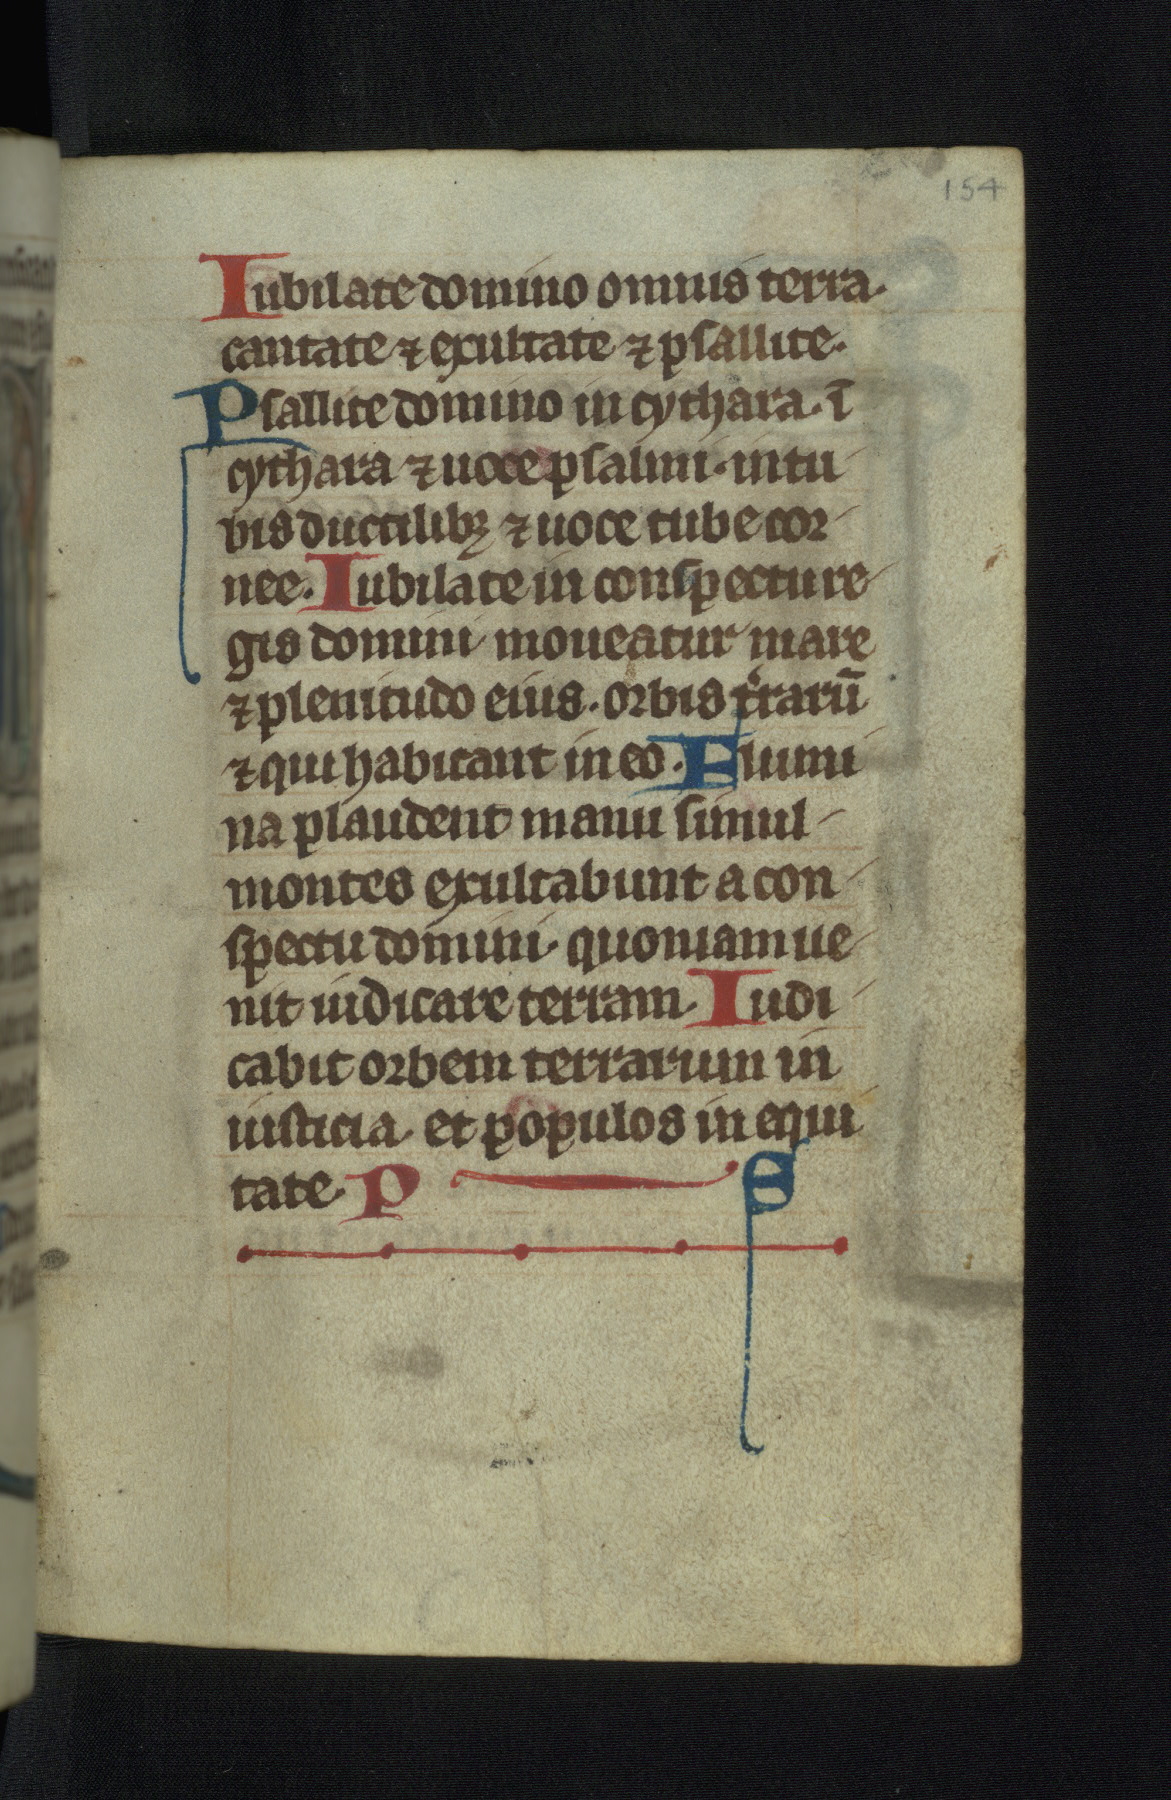 154
Iubilate domino omnis terra.
cantate ⁊ exultate ⁊ psallite.
Psallite domino in cythara. ī
cythara ⁊ uoce psalmi. in tu
bis ductilibꝫ ⁊ uoce tube cor
nee. Iubilate in conspectu re
gis domini moueatur mare
⁊ plenitudo eius. orbis t̾rarū
⁊ qui habitant in eo. Flumi
na plaudent manu simul
montes exultabunt a con
spectu domini. quoniam ue
nit iudicare terram. Iudi
cabit orbem terrarum in
iusticia. et populos in equi
tate. P S